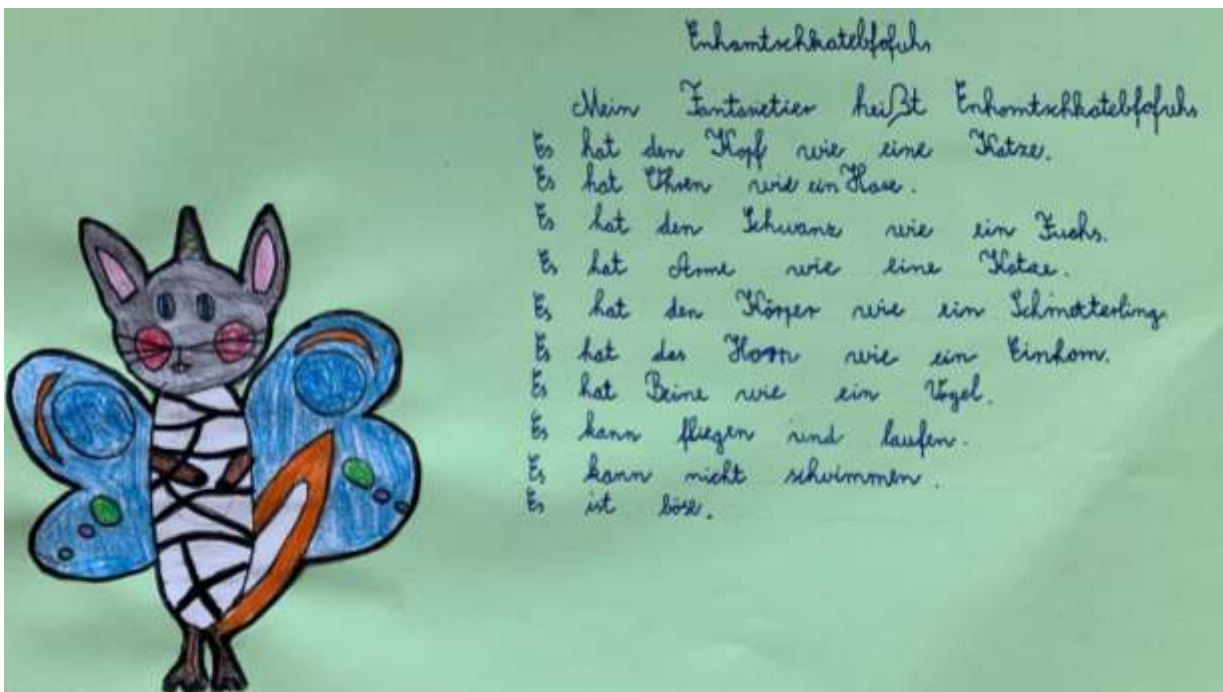 Enhamtschkatebfofuhs
Mein Fantasietier heißt Enhomtschkatebfofuhs
Es hat den Kopf wie eine Katze.
Es hat Ohren wie ein Hase.
Es hat den Schwanz wie ein Fuchs.
Es hat Arme wie eine Katze.
Es hat den Körper wie ein Schmetterling
Es hat das Horn wie ein Einhorn.
Es hat Beine wie ein Vogel.
Es kann fliegen und laufen.
Es kann nicht schwimmen.
Es ist böse.